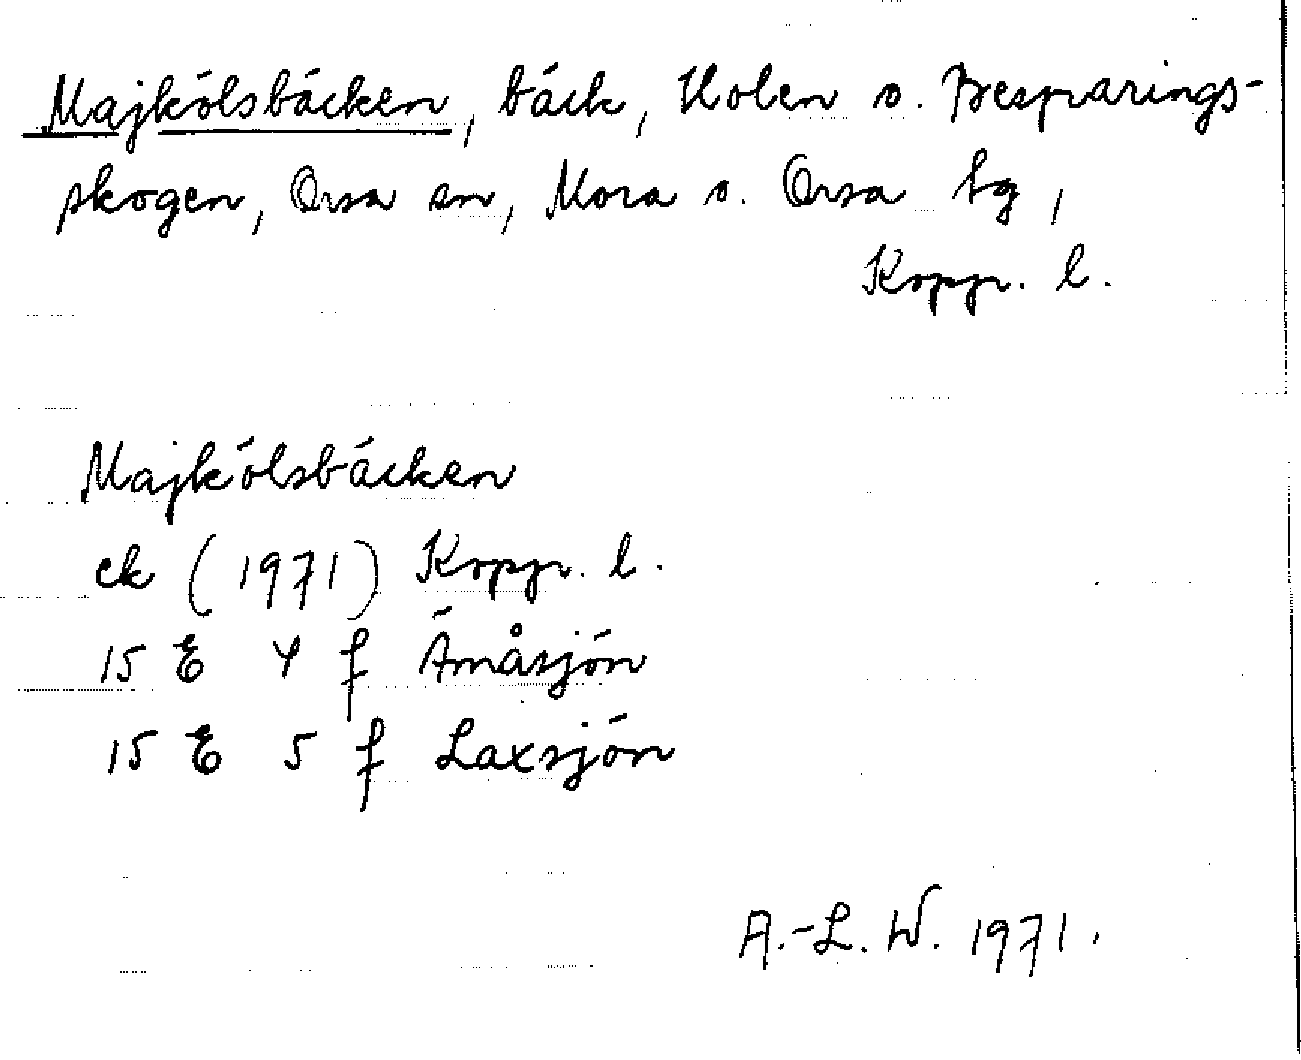 Majkölsbäcken, bäck, Holen o. Besparings-
skogen, Orsa sn, Mora o. Orsa tg,
Kopp. l.
Majkölsbäcken
ek (1971) Kopp. l.
15 E 4 f Ämåsjön
15 E 5 f Laxsjön
A.-L. W. 1971.